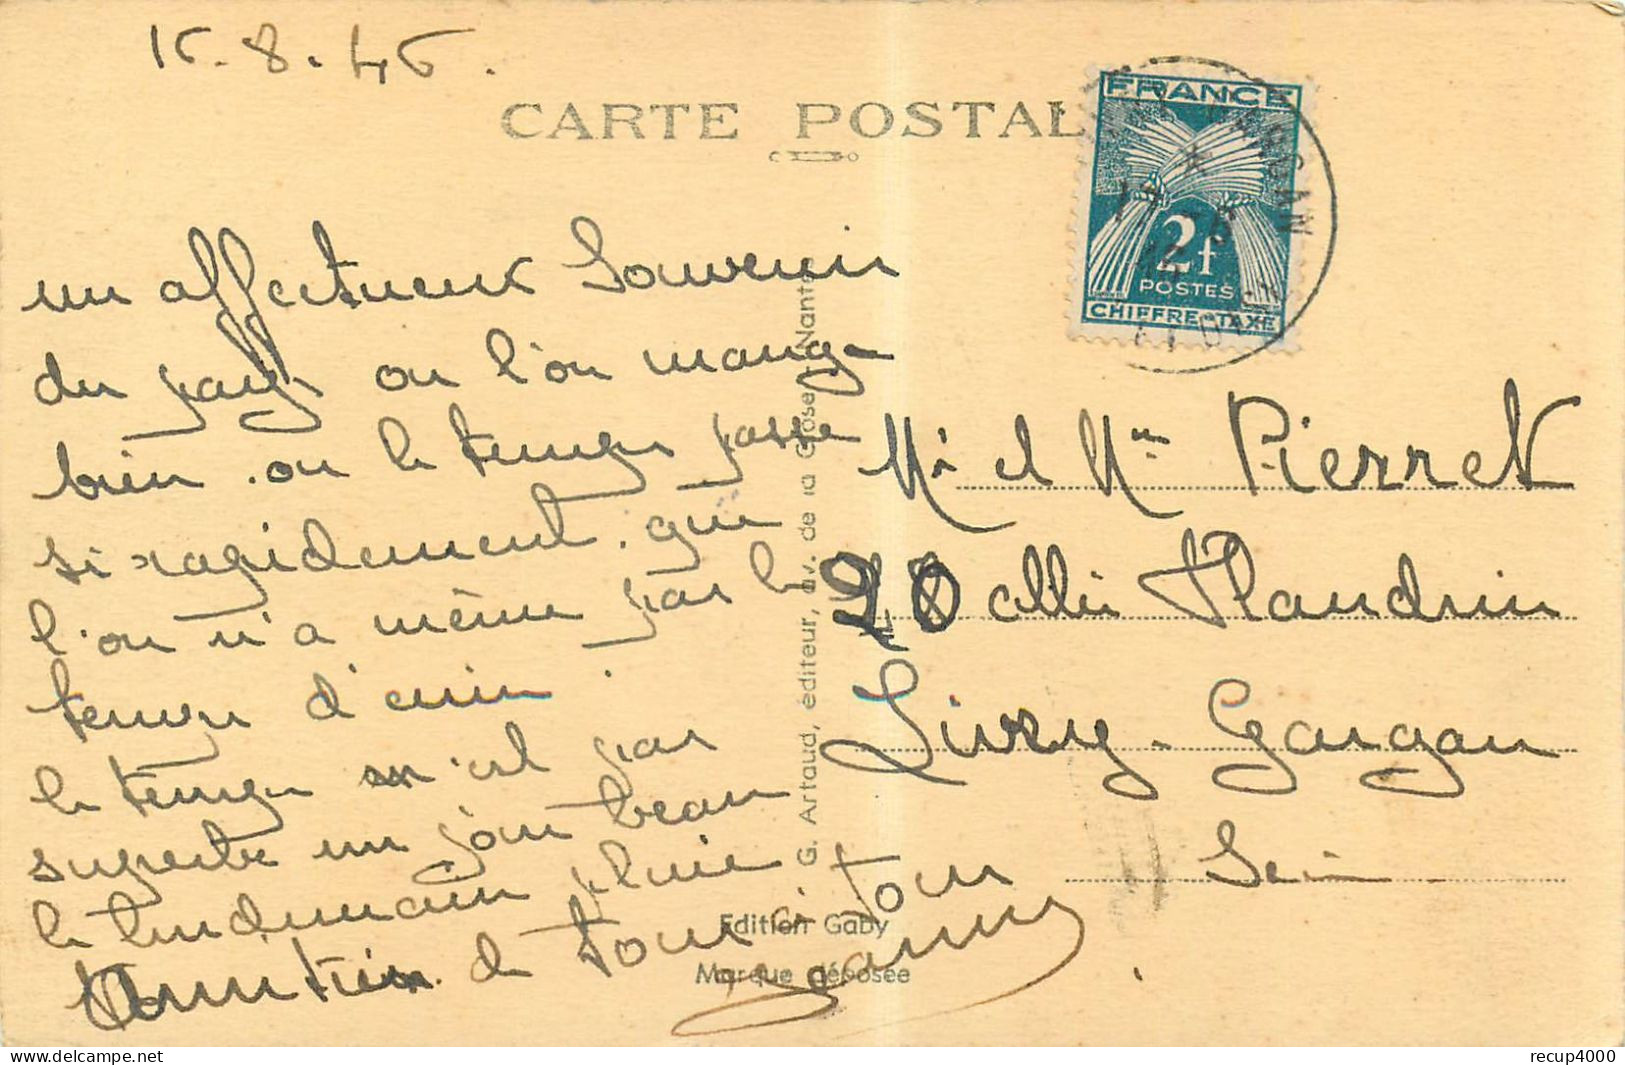 15.8.46.
CARTE POSTAL
FRANCE
2f
POSTES
CHIFFRE TAXE
GARGAN
un affectueux Souvenir
du pays ou l'on mange
bien. ou le temps passe
si rapidement. que
l'on n'a même pas le
temps d'
le temps n'est pas
superbe un jour beau
le lendemain pluie
de tous à tous
Mr et Mme Pierret
20 allée Flandrin
Livry-Gargan
Seine
G. Artaud, éditeur, av. de la Close, Nantes
Edition Gaby
Marque déposée
recup4000